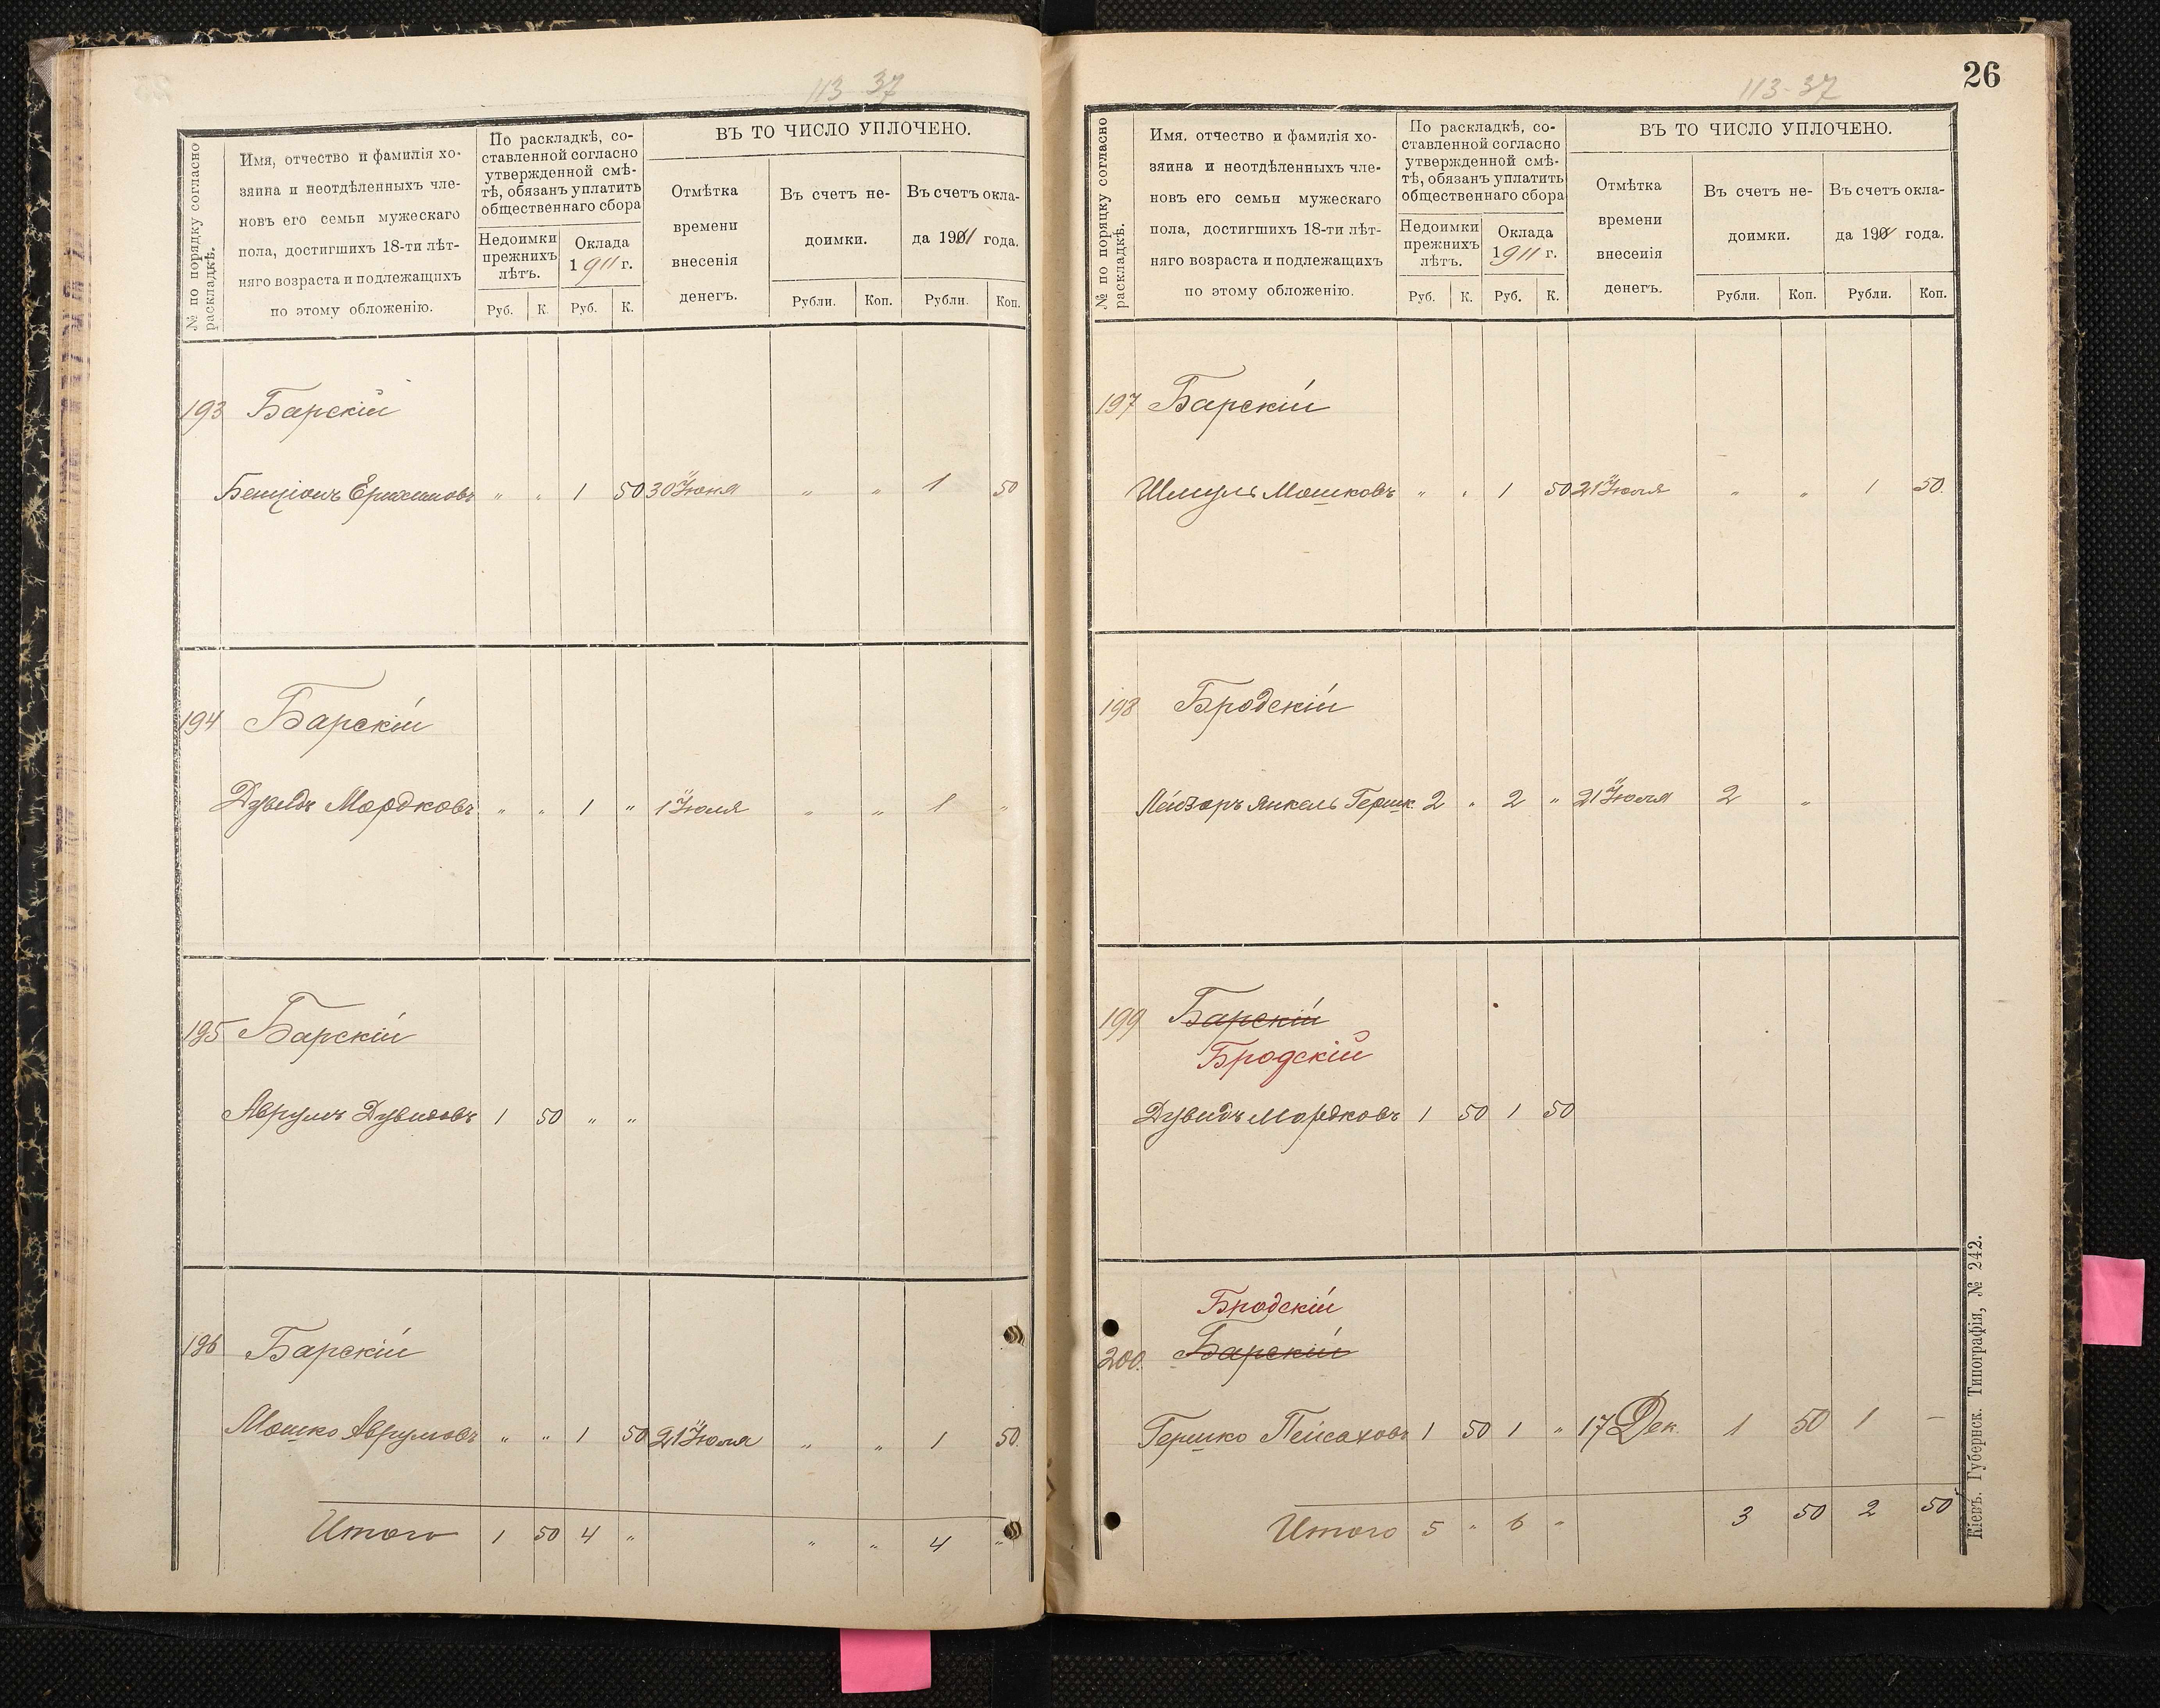 113 37
№ по порядку согласно
раскладкѣ.
Имя, отчество и фамилія хо-
зяина и неотдѣленныхъ чле-
новъ его семьи мужескаго
пола, достигшихъ 18-ти лѣт-
няго возраста и подлежащихъ
по этому обложенію.
По раскладкѣ, со-
ставленной согласно
утвержденной смѣ-
тѣ, обязанъ уплатить
общественнаго сбора
Недоимки
прежнихъ
лѣтъ.
Оклада
1911 г.
Руб. К. Руб. К.
ВЪ ТО ЧИСЛО УПЛОЧЕНО.
Отмѣтка
времени
внесенія
денегъ.
Въ счетъ не-
доимки.
Въ счетъ окла-
да 1911 года.
Рубли. Коп. Рубли. Коп.
193 Барскій
Бенціонъ " " 1 50 30 Іюня " " 1 50
194 Барскій
Дувидъ Мордковъ " " 1 " 1 Іюля " " 1 "
195 Барскій
Аврумъ Дувидовъ 1 50 " "
196 Барскій
Мошко Аврумовъ " " 1 50 21 Іюля " " 1 50
Итого 1 50 4 " " " 4 "
113-37
26
№ по порядку согласно
раскладкѣ.
Имя. отчество и фамилія хо-
зяина и неотдѣленныхъ чле-
новъ его семьи мужескаго
пола, достигшихъ 18-ти лѣт-
няго возраста и подлежащихъ
по этому обложенію.
По раскладкѣ, со-
ставленной согласно
утвержденной смѣ-
тѣ, обязанъ уплатить
общественнаго сбора
Недоимки
прежнихъ
лѣтъ.
Оклада
1911 г.
Руб. К. Руб. К.
ВЪ ТО ЧИСЛО УПЛОЧЕНО.
Отмѣтка
времени
внесенія
денегъ.
Въ счетъ не-
доимки.
Въ счетъ окла-
да 1911 года.
Рубли. Коп. Рубли. Коп.
197 Барскій
Шмуль Мошковъ " " 1 50 21 Іюля " " 1 50
198 Бродскій
Лейзоръ Янкель Гершк. 2 " 2 " 21 Іюля 2 "
199 Барскій
Бродскій
Дувидъ Мордковъ 1 50 1 50
Бродскій
200. Барскій
Гершко Пейсаховъ 1 50 1 " 17 Дек. 1 50 1 —
Итого 5 " 6 " 3 50 2 50
Кіевъ. Губернск. Типографія, № 242.